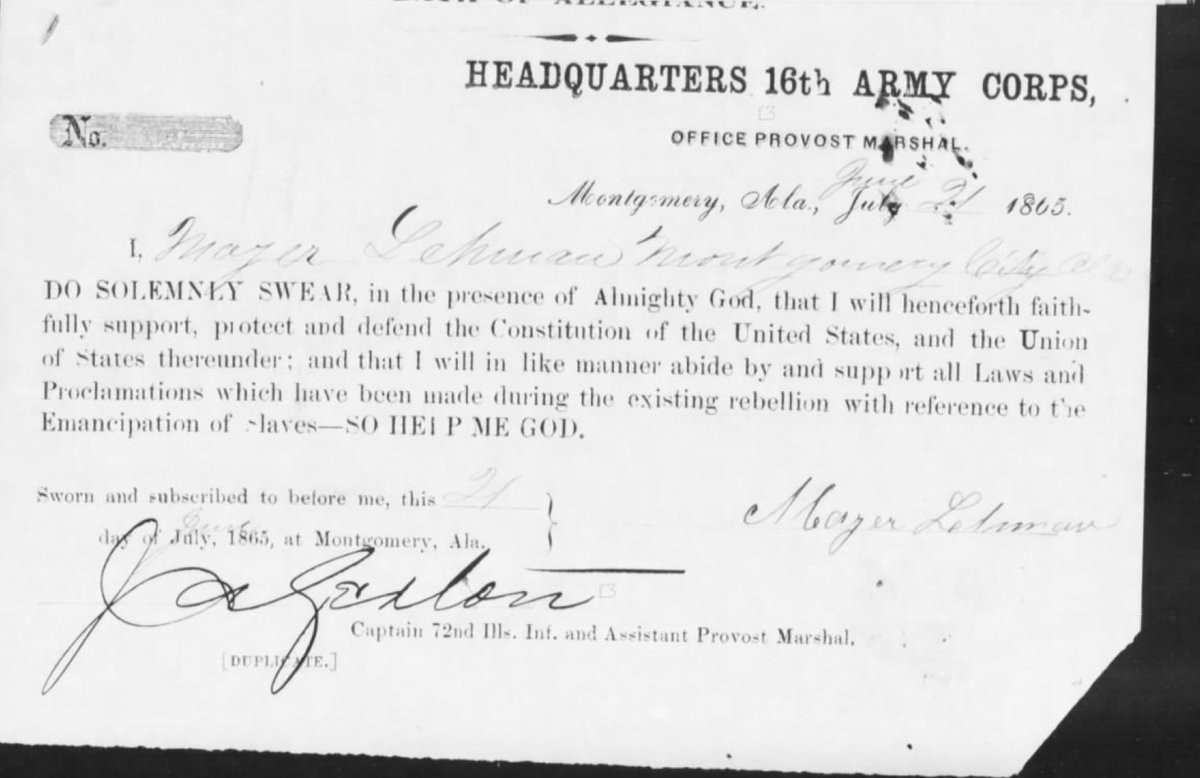 OATH OF ALLEGIANCE.
HEADQUARTERS 16th ARMY CORPS,
No.
OFFICE PROVOST MARSHAL.
June
Montgomery, Ala., July 21 1865.
I, Mayer Lehman Montgomery City Ala
DO SOLEMNLY SWEAR, in the presence of Almighty God, that I will henceforth faith-
fully support, protect and defend the Constitution of the United States, and the Union
of States thereunder; and that I will in like manner abide by and support all Laws and
Proclamations which have been made during the existing rebellion with reference to the
Emancipation of slaves—SO HELP ME GOD.
Sworn and subscribed to before me, this 21
June
day of July, 1865, at Montgomery, Ala.
Mayer Lehman
Captain 72nd Ills. Inf. and Assistant Provost Marshal.
[DUPLICATE.]